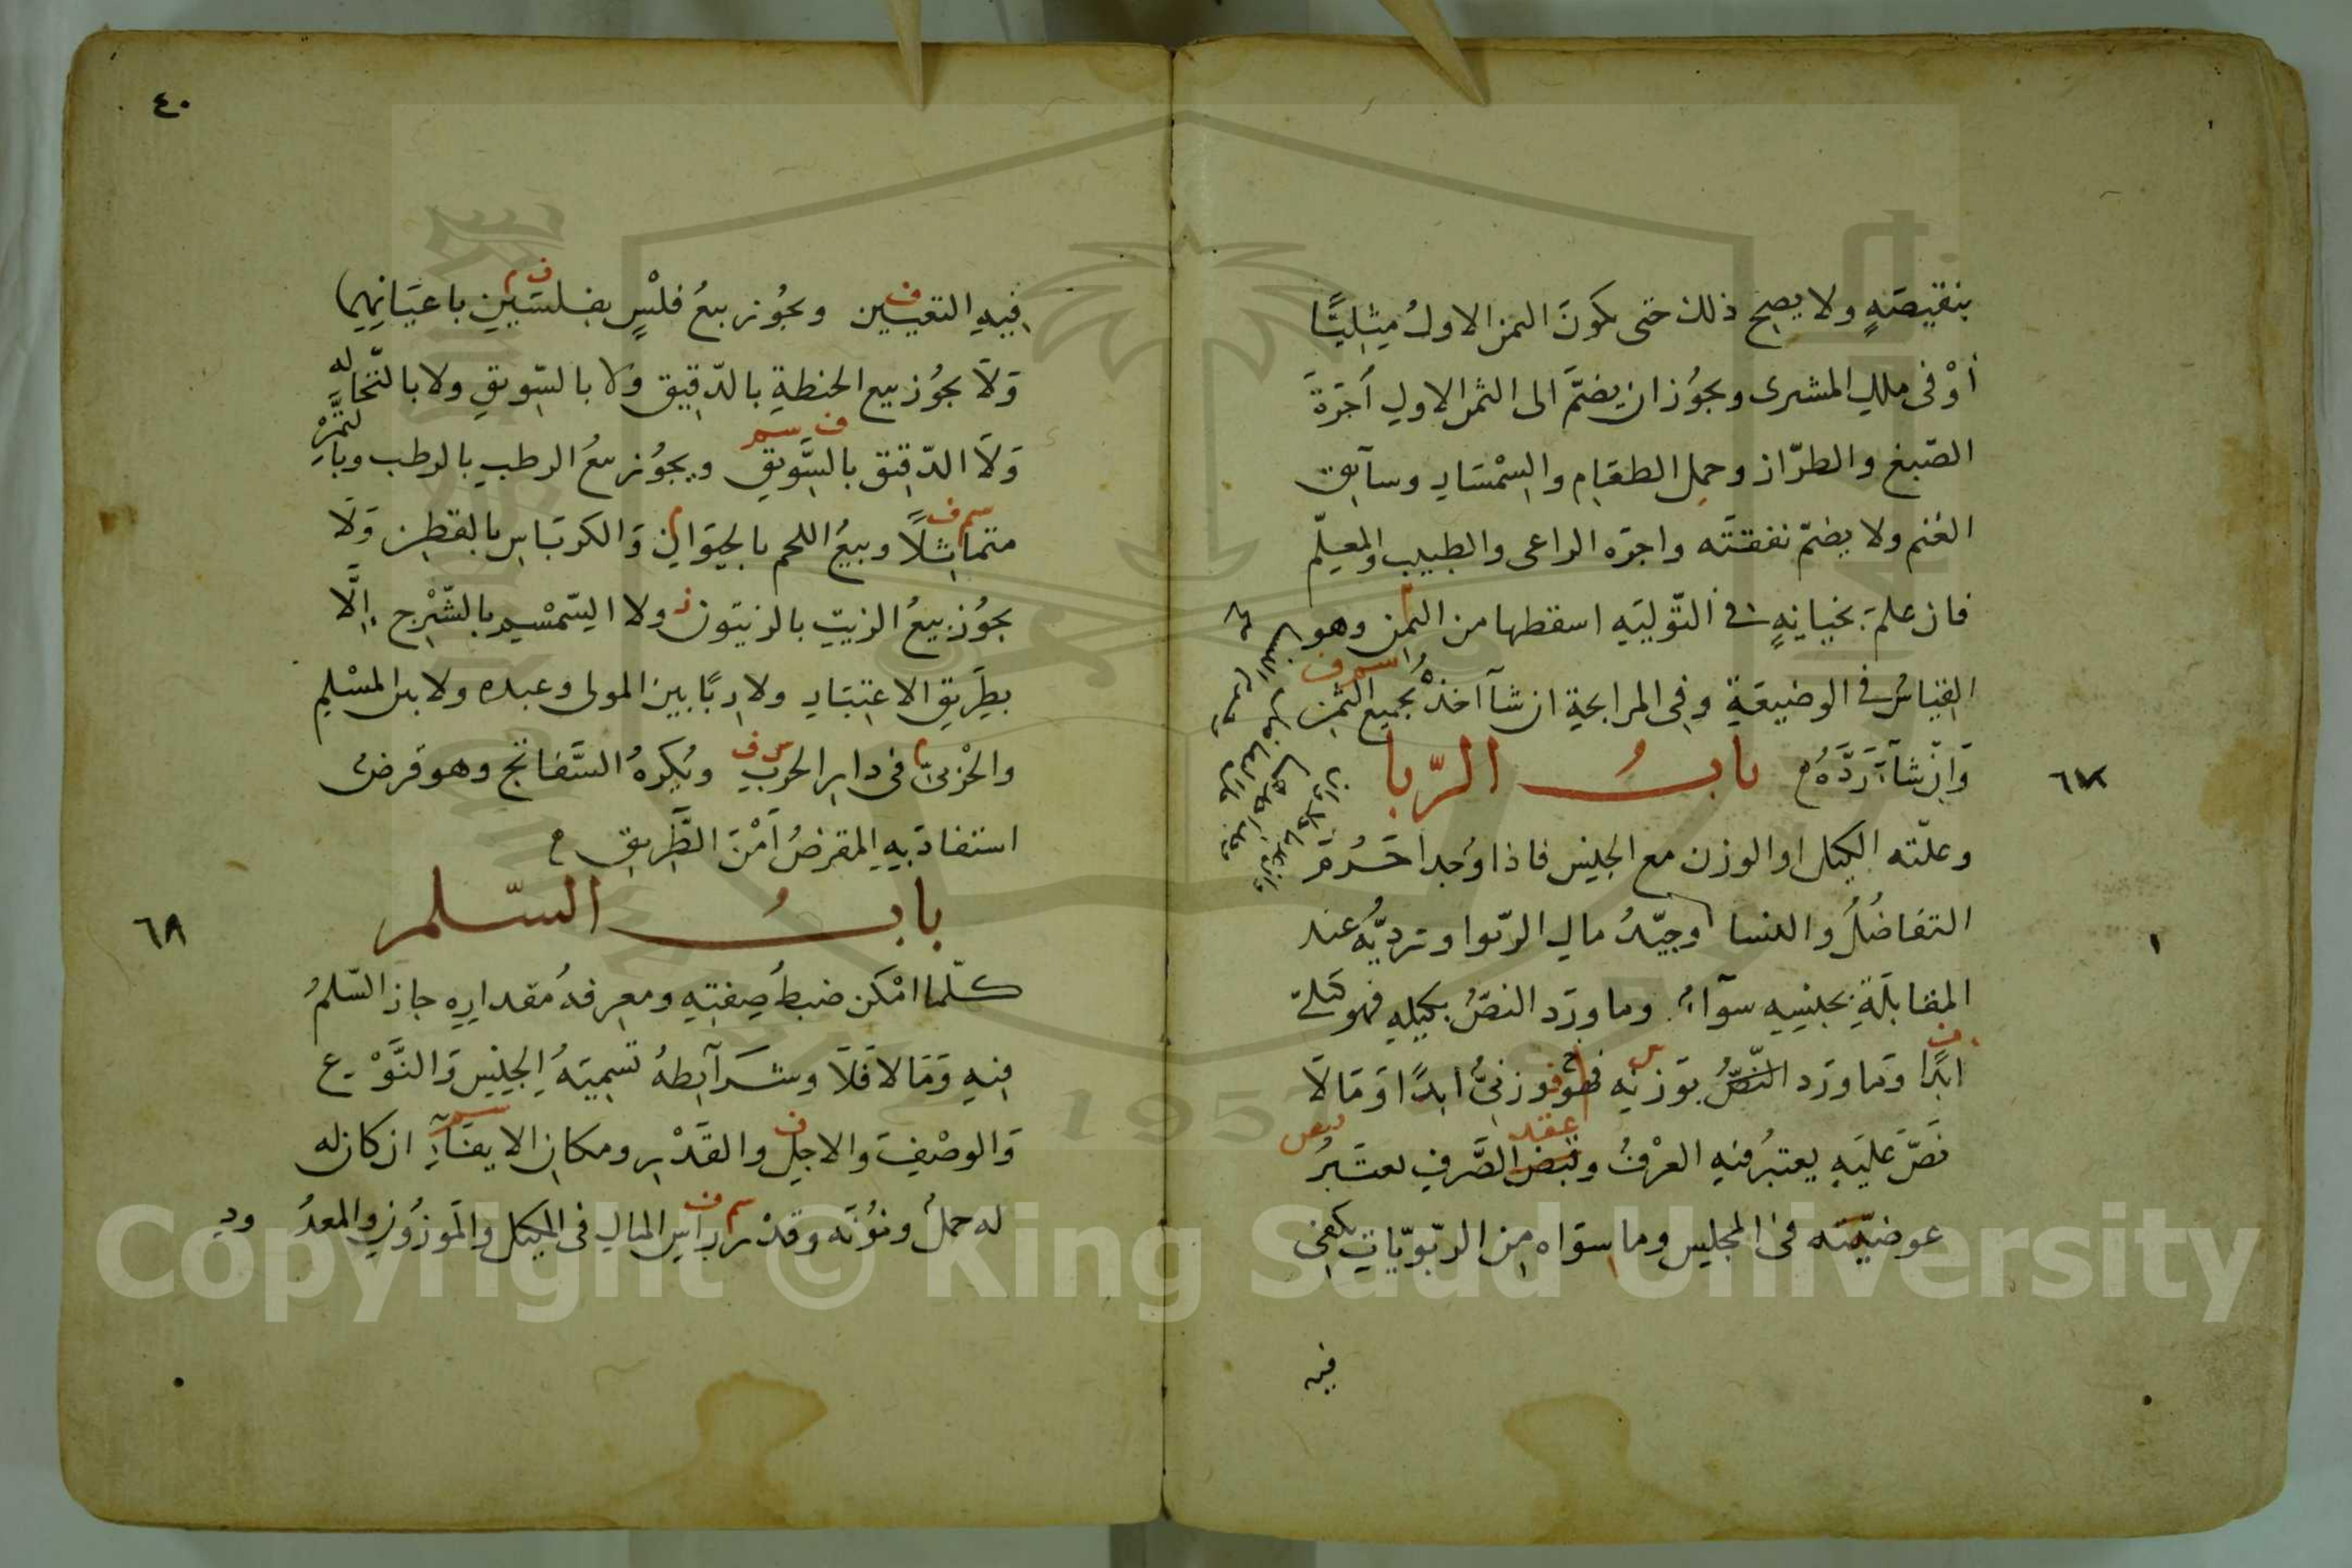 بنقيصة ولا يصح ذلك حتى يكون الثمن الاول مثليًا
أوْ فى ملك المشترى ويجوُز ان يضمَّ الى الثمن الاول أجرَةَ
الصّبغ والطرّاز وحمل الطعَام والسِمْسَار وسآيق
الغنم ولا يضمّ نفقتَه واجرَه الراعى والطبيب والمعلّم
فان علم بخيانةٍ فى التّوليَه اسقطها من الثمن وهو
القياسُ فى الوضيعَةِ وفى المرابحة ان شآ اخذهُ بجميع الثمن
وَاِنْ شآءَ رَدَّهُ
بابُ الرّبا
٦٧
وعلّته الكيل او الوزن مع الجنس فاذا وُجدا حَرُمَ
التفَاضُلُ والنسا وجيّدُ مال الرّبوا ورديُّه عند
المقابلَةِ بجنسِه سوآءٌ وما ورَد النصّ بكيلِه فهو كَيلىّ
ابدًا وَما ورَد النّصُّ بوَزنِه فهو وزنىُّ ابدًا وَمَا لاَ
نَصَّ عَليَهِ يعتبرُ فيهِ العرْفُ وعقد الصَّرفِ يعتَبرُ قبض
عوضيّته فى المجلس وما سِوَاه مِن الربَوّيّاتِ يكفى
فيه
٤٠
فِيهِ التعيين ويجُوز بيعُ فلْسٍ بفلسَيْنِ باعيَانِهِما
وَلاَ يجوُز بيع الحنطةِ بالدّقيق وَلا بالسّويقِ ولا بالنّخاله
وَلاَ الدّقيق بالسَّويقِ ويجوُز بيعُ الرطبِ بالرطب وبالتّمْرِ
متماثِلاً وبيعُ اللحم بالحيَوانِ وَالكرباسِ بالقطنِ وَلاَ
يجوُز بيعُ الزيتِ بالزيتون ولا السّمْسم بالشّيْرج اِلَّا
بطريق الاعتبَارِ ولا رِبًا بين المولى وعبده ولا بين المسْلم
والحَرْبىّ فى دار الحرب ويُكرهُ السَّفاتج وهو قرضٌ
استفادَ بِهِ المقرضُ أمْنَ الطَّرِيقِ
بابُ السّلم
٦٨
كلّما امْكن ضبطُ صِفتِهِ ومعرفةُ مقدارِه جاز السّلمُ
فيهِ وَمَا لا فَلاَ وشَرآيطهُ تسميَةُ الجِنسِ وَالنَّوْع
وَالوصْفِ وَالاجلِ والقَدْر ومكان الايفآءِ ان كان له
له حملٌ ومؤنَه وقدْر رأسِ المال فى المكيل والمَوزُونِ والمعدُ ودِ
Copyright © King Saud University
1957